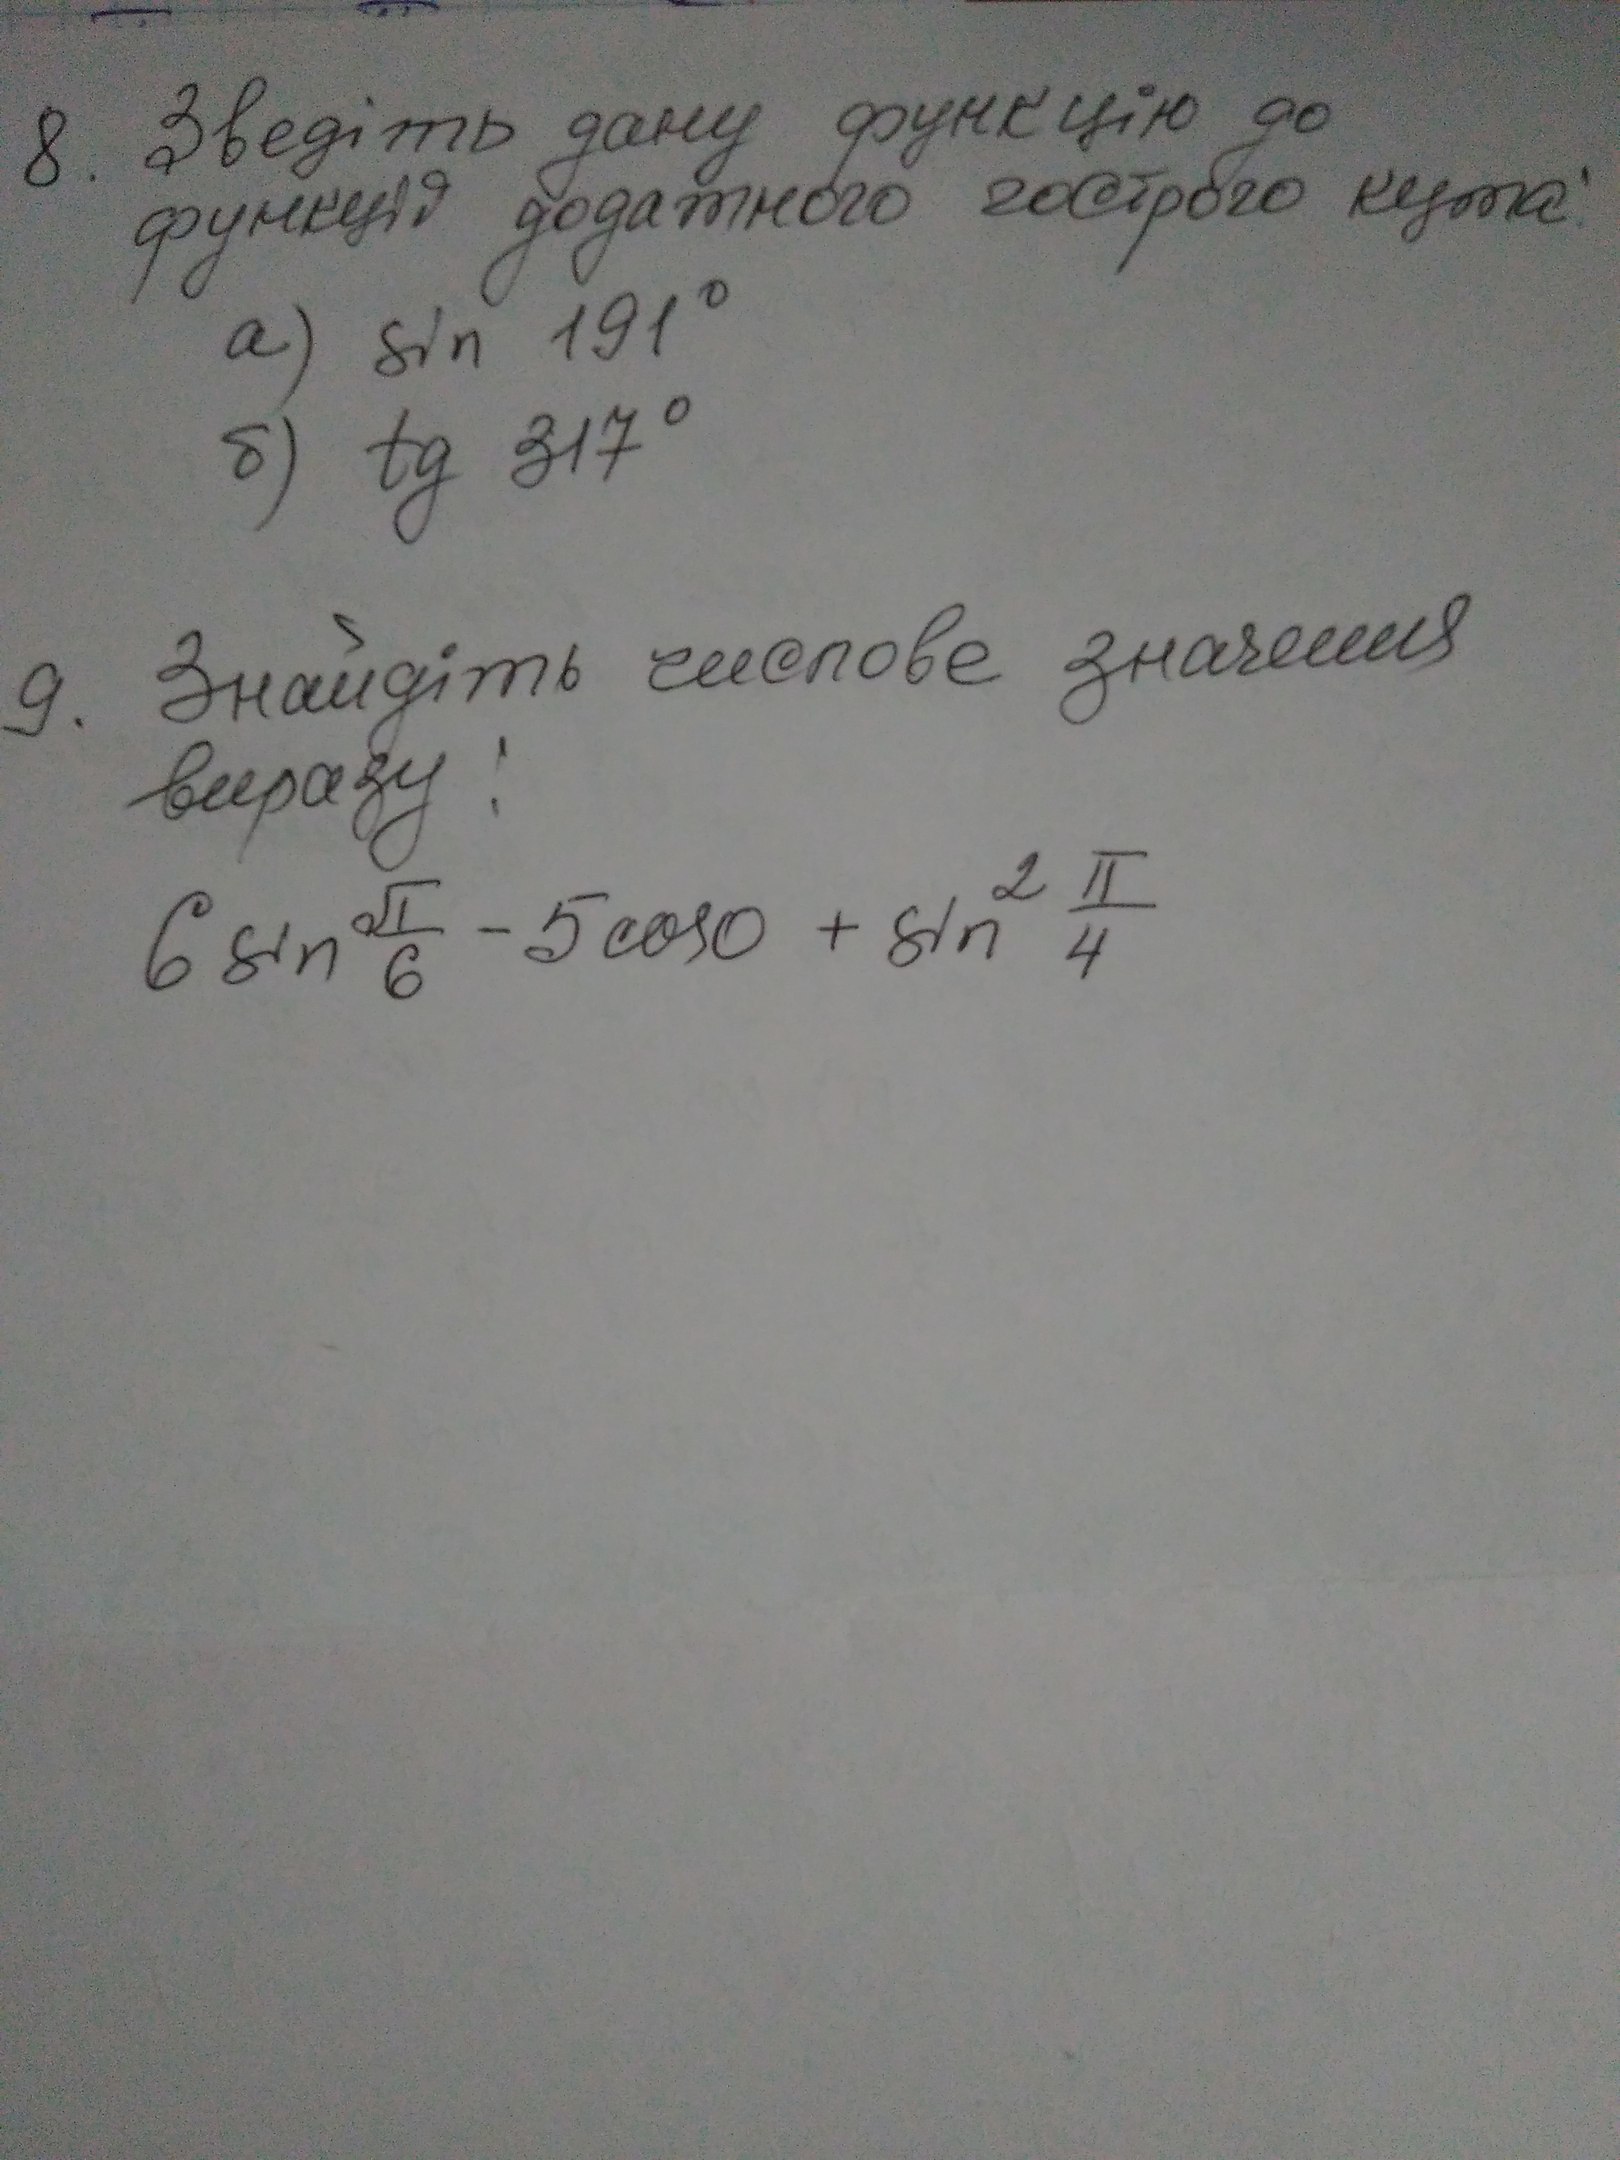 8. Зведіть дану функцію до
функція додатного гострого кута:
а) sin 191°
б) tg 317°
9. Знайдіть числове значення
виразу:
6 sin π/6 - 5 cos 0 + sin² π/4